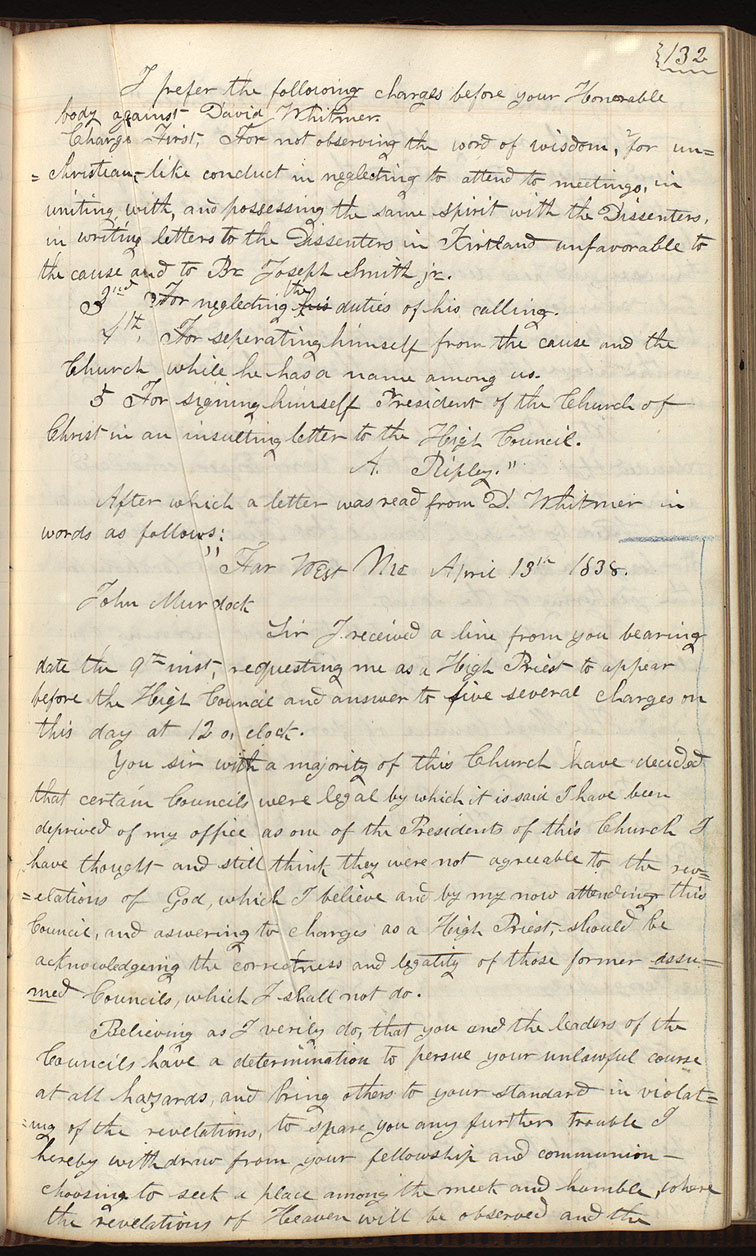 132
I prefer the following charges before your Honorable
body against David Whitmer.
Charge First, For not observing the word of wisdom, 2nd for un=
=Christian-like conduct in neglecting to attend to meetings, in
uniting with, and possessing the same spirit with the Dissenters,
in writing letters to the Dissenters in Kirtland unfavorable to
the cause and to Br. Joseph Smith jr.
3 For neglecting his the duties of his calling.
4th, For seperating himself from the cause and the
Church while he has a name among us.
5 For signing himself President of the Church of
Christ in an insulting letter to the High Council.
A. Ripley."
After which a letter was read from D. Whitmer in
words as follows:
"Far West Mo April 13th 1838.
John Murdock
Sir I received a line from you bearing
date the 9th inst, requesting me as a High Priest to appear
before the High Council and answer to five several charges on
this day at 12 o, clock.
You sir with a majority of this Church have decided
that certain Councils were legal by which it is said I have been
deprived of my office as one of the Presidents of this Church I
have thought and still think they were not agreeable to the rev=
=elations of God, which I believe and by my now attending this
Council, and aswering to charges as a High Priest, should be
acknowledgeing the correctness and legality of those former assu=
med Councils, which I shall not do.
Believing as I verily do, that you and the leaders of the
Councils have a determination to persue your unlawful course
at all hazards, and bring others to your standard in violat=
=ing of the revelations, to spare you any further trouble I
hereby withdraw from your fellowship and communion—
choosing to seek a place among the meek and humble, where
the revelations of Heaven will be observed and the